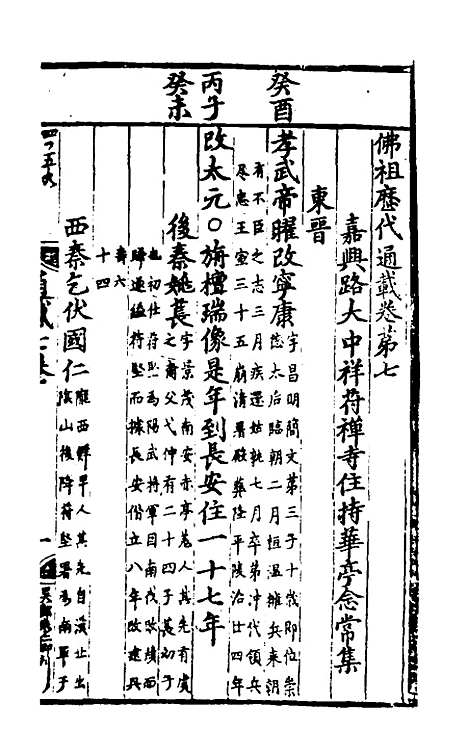 佛祖歷代通載卷第七
嘉興路大中祥符禪寺住持華亭念常集
東晉
癸酉
孝武帝曜改寧康
字昌明簡文第三子十歲即位崇
德太后臨朝二月桓溫擁兵來朝
有不臣之志三月疾還姑孰七月卒弟沖代領兵
尽忠王室三十五崩清暑殿葬隆平陵治廿四年
丙子
改太元○旃檀瑞像是年到長安住一十七年
癸未
後秦姚萇
字景茂南安赤亭羌人其先有虞
之裔父弋仲有二十四子萇初子
也初仕苻堅為陽武將軍因南伐敗績而
歸遂縊苻堅而據長安僭立八年改建兵
壽六
十四
西秦乞伏國仁
隴西鮮卑人其先自漠北出
陰山後降苻堅署為南單于